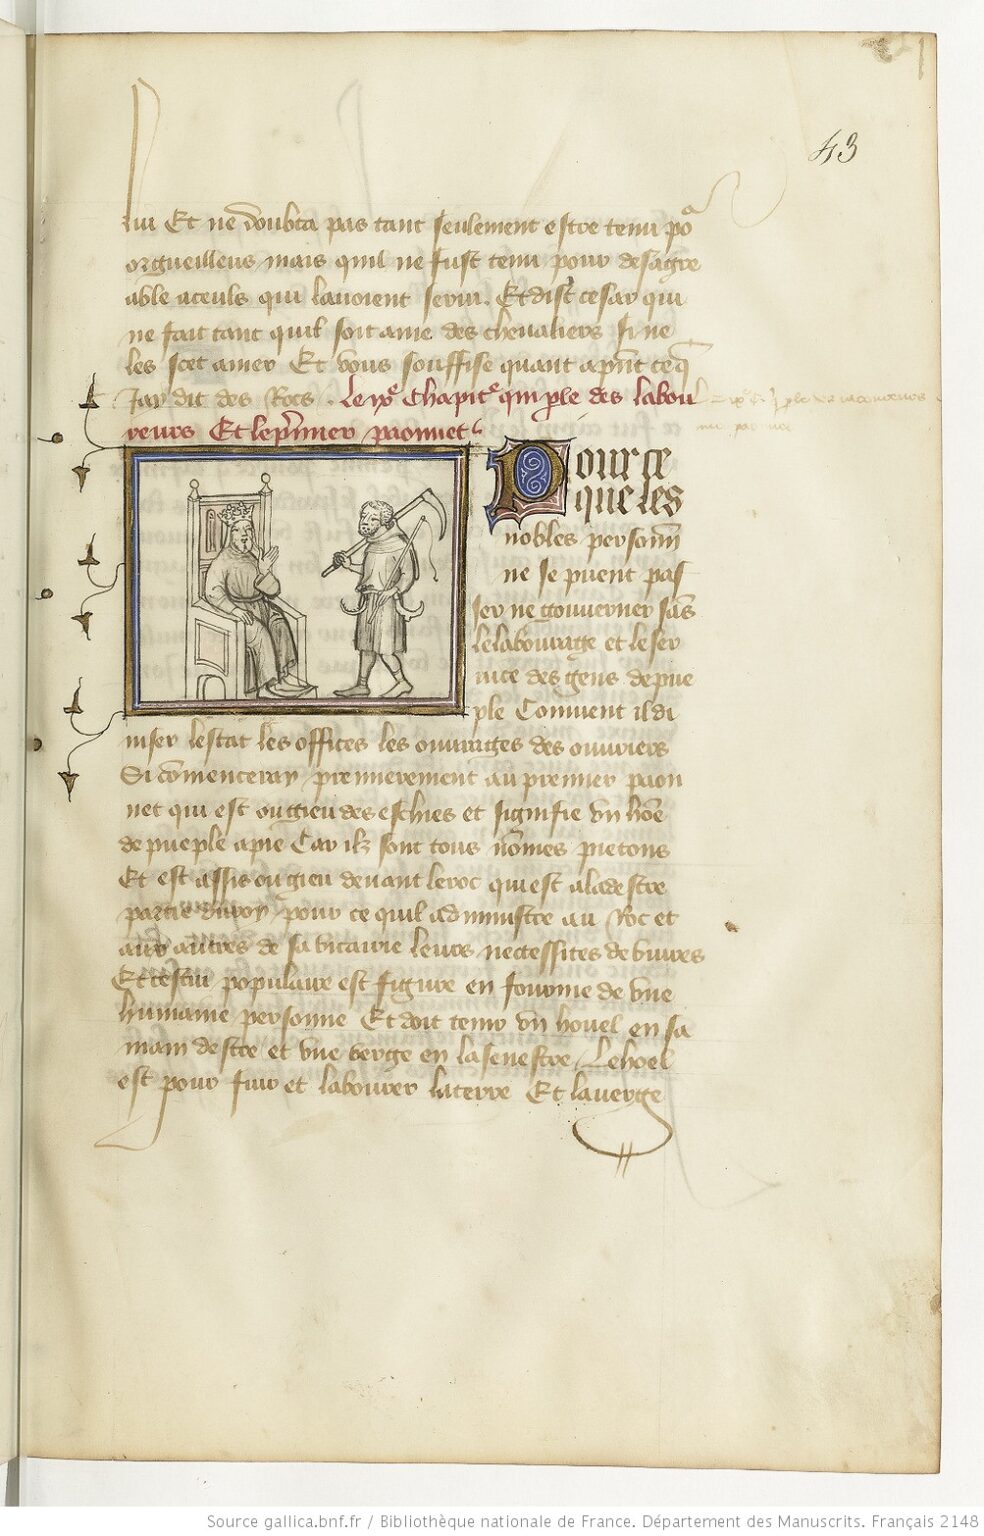 43
lui Et ne doubta pas tant seulement estre tenu poᵃ
orgueilleus mais quil ne fust tenu pour desagre
able aceuls qui lauoient serui. Et dist cesar qui
ne fait tant quil soit ame des cheualiers Il ne
les scet amer Et vous souffise quant apn̄t ce q̄
Jay dit des Rocs. le ixᵉ Chapitᵉ qui ꝑle des labou
reurs Et le p̄mier paonnet
Pour ce
que les
nobles personn̄
ne se puent pas
ser ne gouuerner sās
le labourage et le ser
uice des gens de pue
ple Conuient il di
uiser lestat les offices les ouurages des ouuriers
Si cōmenceray premierement au premier paon
net qui est ou gieu des eschies et signifie vn hōe
de pueple apie Car ilz sont tous nōmes pietons
Et est assis ou gieu deuant le roc qui est a la destre
partie du roy pour ce quil administre au Roc et
aux autres de sa vicairie leurs necessites de viures
Et cestui populaire est figure en fourme de vne
humaine personne Et doit tenir vn houel en sa
main destre et vne verge en la senestre Le hoel
est pour fuir et labourer la terre Et la verge
Source gallica.bnf.fr / Bibliothèque nationale de France. Département des Manuscrits. Français 2148